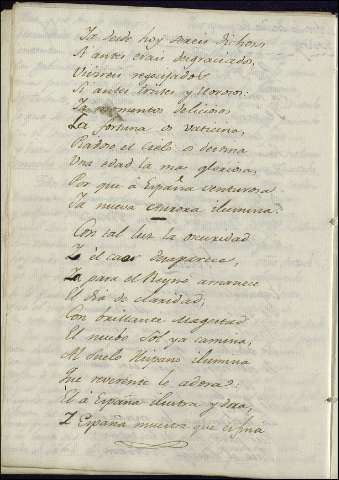 Ya desde hoy sereis dichosos
Si antes erais desgraciados,
Vivireis regocijados
Si antes tristes y llorosos:
Ya momentos deliciosos
La fortuna os vaticina,
Piadoso el Cielo os destina
Una edad la mas gloriosa,
Por que à España venturosa
Ya nueva Aurora ilumina.
Con tal luz la oscuridad
Y el caos desaparece,
Ya para el Reyno amanece
El dia de claridad,
Con brillante Magestad
El nuebo Sol ya camina,
Al Suelo Hispano ilumina
Que reverente le adora:
El à España ilustra y dora,
Y España muestra que es fina